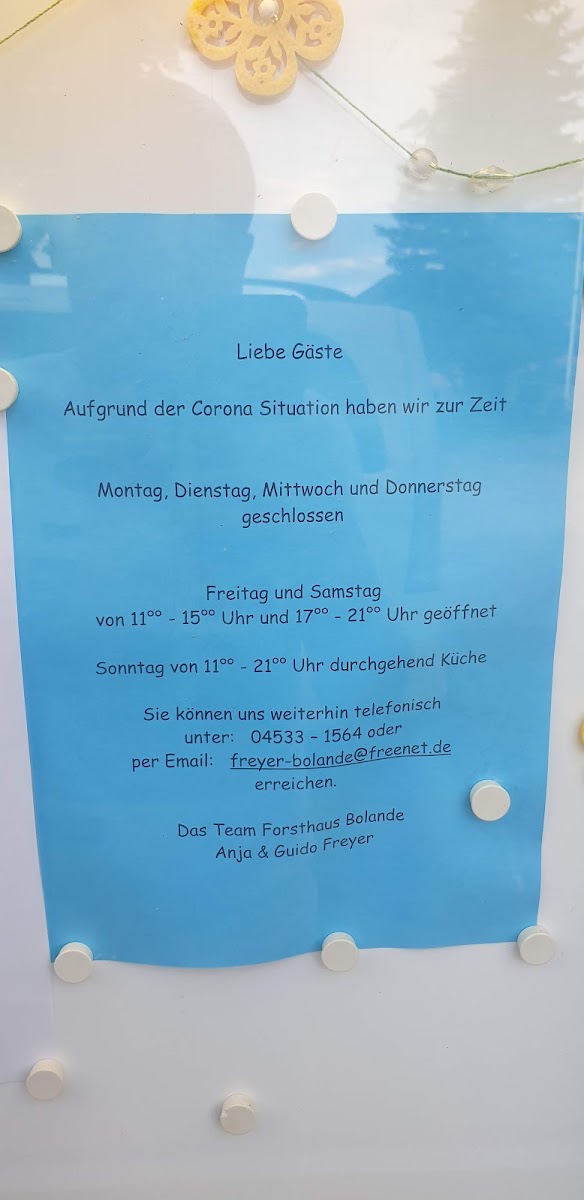 Liebe Gäste
Aufgrund der Corona Situation haben wir zur Zeit
Montag, Dienstag, Mittwoch und Donnerstag
geschlossen
Freitag und Samstag
von 11ºº - 15ºº Uhr und 17ºº - 21ºº Uhr geöffnet
Sonntag von 11ºº - 21ºº Uhr durchgehend Küche
Sie können uns weiterhin telefonisch
unter: 04533 – 1564 oder
per Email: freyer-bolande@freenet.de
erreichen.
Das Team Forsthaus Bolande
Anja & Guido Freyer